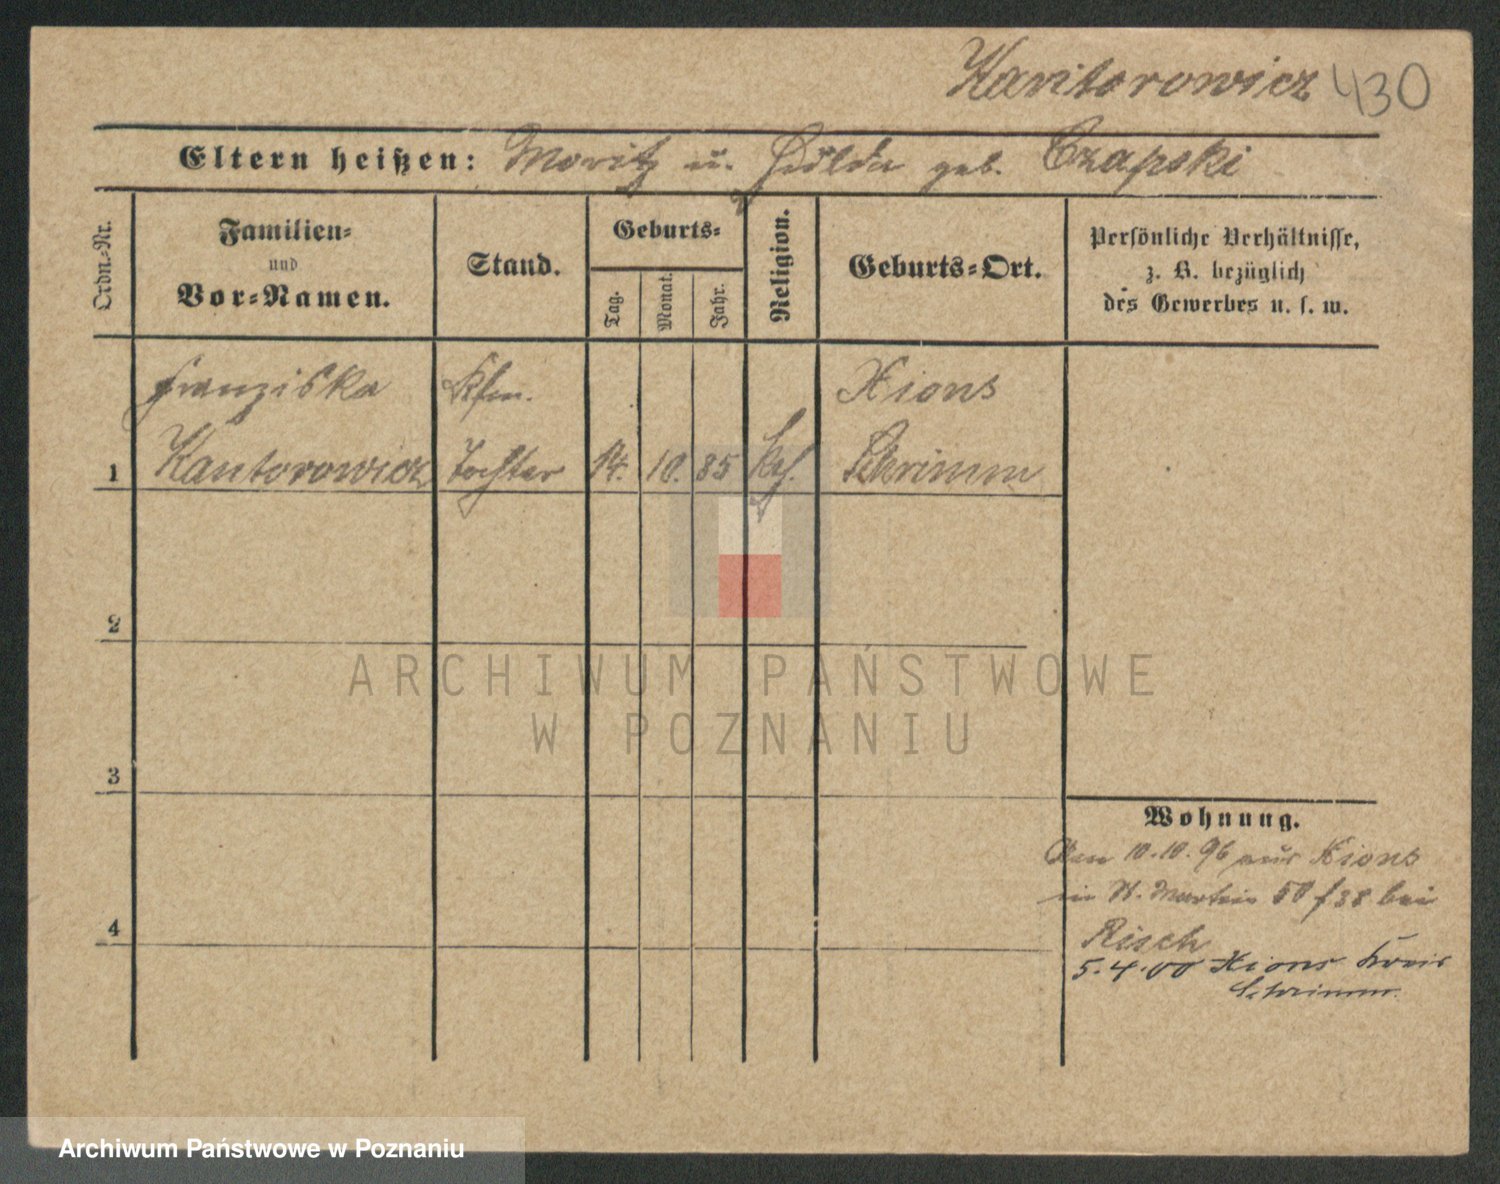 Kantorowicz 430
Eltern heißen: Moritz u. Hulda geb. Czapski
Ordn.-Nr.
Familien-
und
Vor-Namen.
Stand.
Geburts-
Tag.
Monat.
Jahr.
Religion.
Geburts-Ort.
Persönliche Verhältnisse,
z. B. bezüglich
des Gewerbes u. s. w.
Franziska Kfm. Xions
1 Kantorowicz Tochter 14. 10. 85 Schrimm
2
ARCHIWUM PAŃSTWOWE
W POZNANIU
3
4
Wohnung.
Den 10.10.96 aus Xions
in St. Martin 50 f 38 bei
Risch
5.4.00 Xions Kreis
Schrimm.
Archiwum Państwowe w Poznaniu